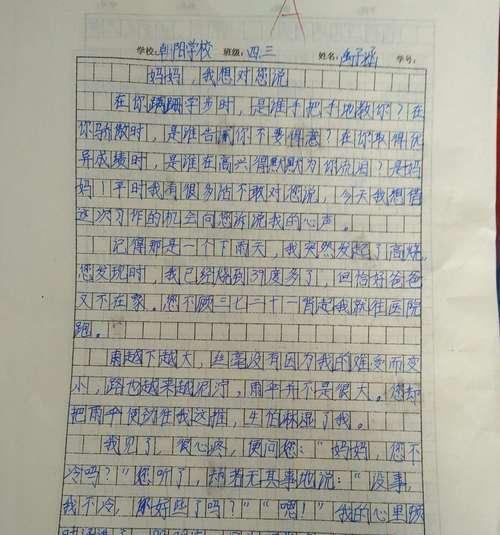 A
学校: 朝阳学校 班级: 四.三 姓名: 学号:
妈妈,我想对您说
在你蹒跚学步时,是谁手把手地教你?在
你骄傲时,是谁告诫你不要得意?在你取得优
异成绩时,是谁在高兴得默默为你流泪?是妈
妈!平时我有很多话不敢对您说,今天我想借
这次习作的机会向您诉说我的心声。
记得那是一个下雨天,我突然发起了高烧,
您发现时,我已经烧到39度多了,但恰好爸爸
又不在家。您不顾三七二十一背起我就往医院
跑。
雨越下越大,丝毫没有因为我的难受而变
小,路也越来越泥泞,雨伞并不是很大。您却
把雨伞使劲往我这推,生怕淋湿了我。
我见了,很心疼,便问您:“妈妈,您不
冷吗?”您听了,却若无其事地说:“没事,
我不冷,你好些了吗?”“嗯!”我的心里